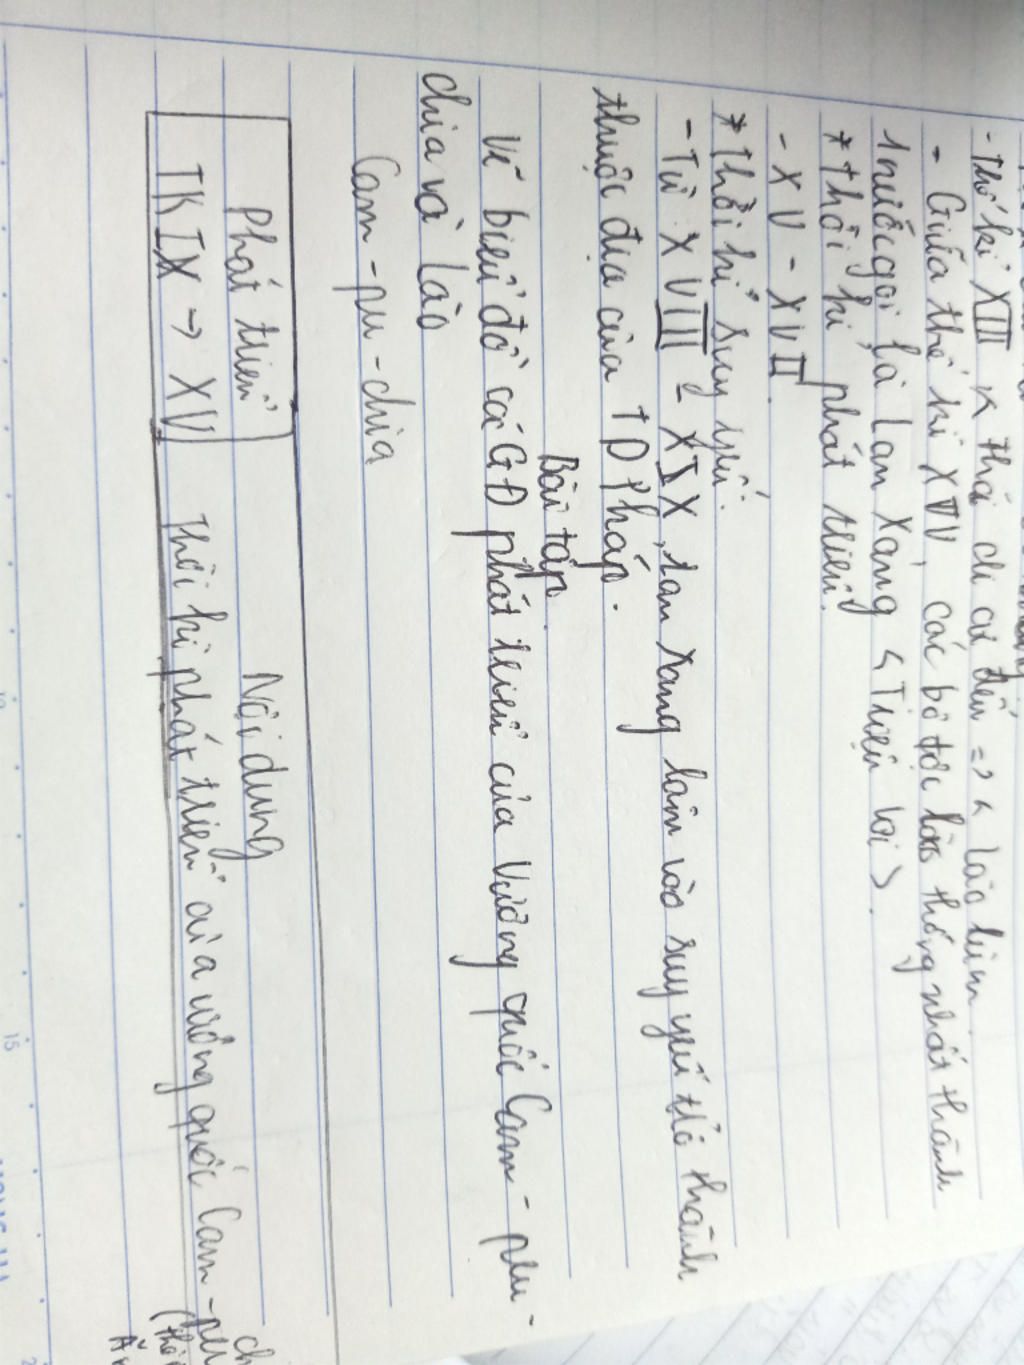 - Thế kỉ XIII  thái di cư đến => < Lào lùm
- Giữa thế kỉ XIV, các bộ tộc lào thống nhất thành
1 nước gọi là Lan Xang < Triệu voi >.
* Thời kì phát triển.
- XV - XVII.
* Thời kì suy yếu.
- Từ XVIII - XIX, Lan Xang lâm vào suy yếu thành
thuộc địa của TD Pháp.
Bài tập.
Vẽ biểu đồ các GĐ phát triển của Vương quốc Cam - pu -
chia và Lào
Cam - pu - chia
Phát triển Nội dung
TK IX → XV Thời kì phát triển của vương quốc Cam - pu